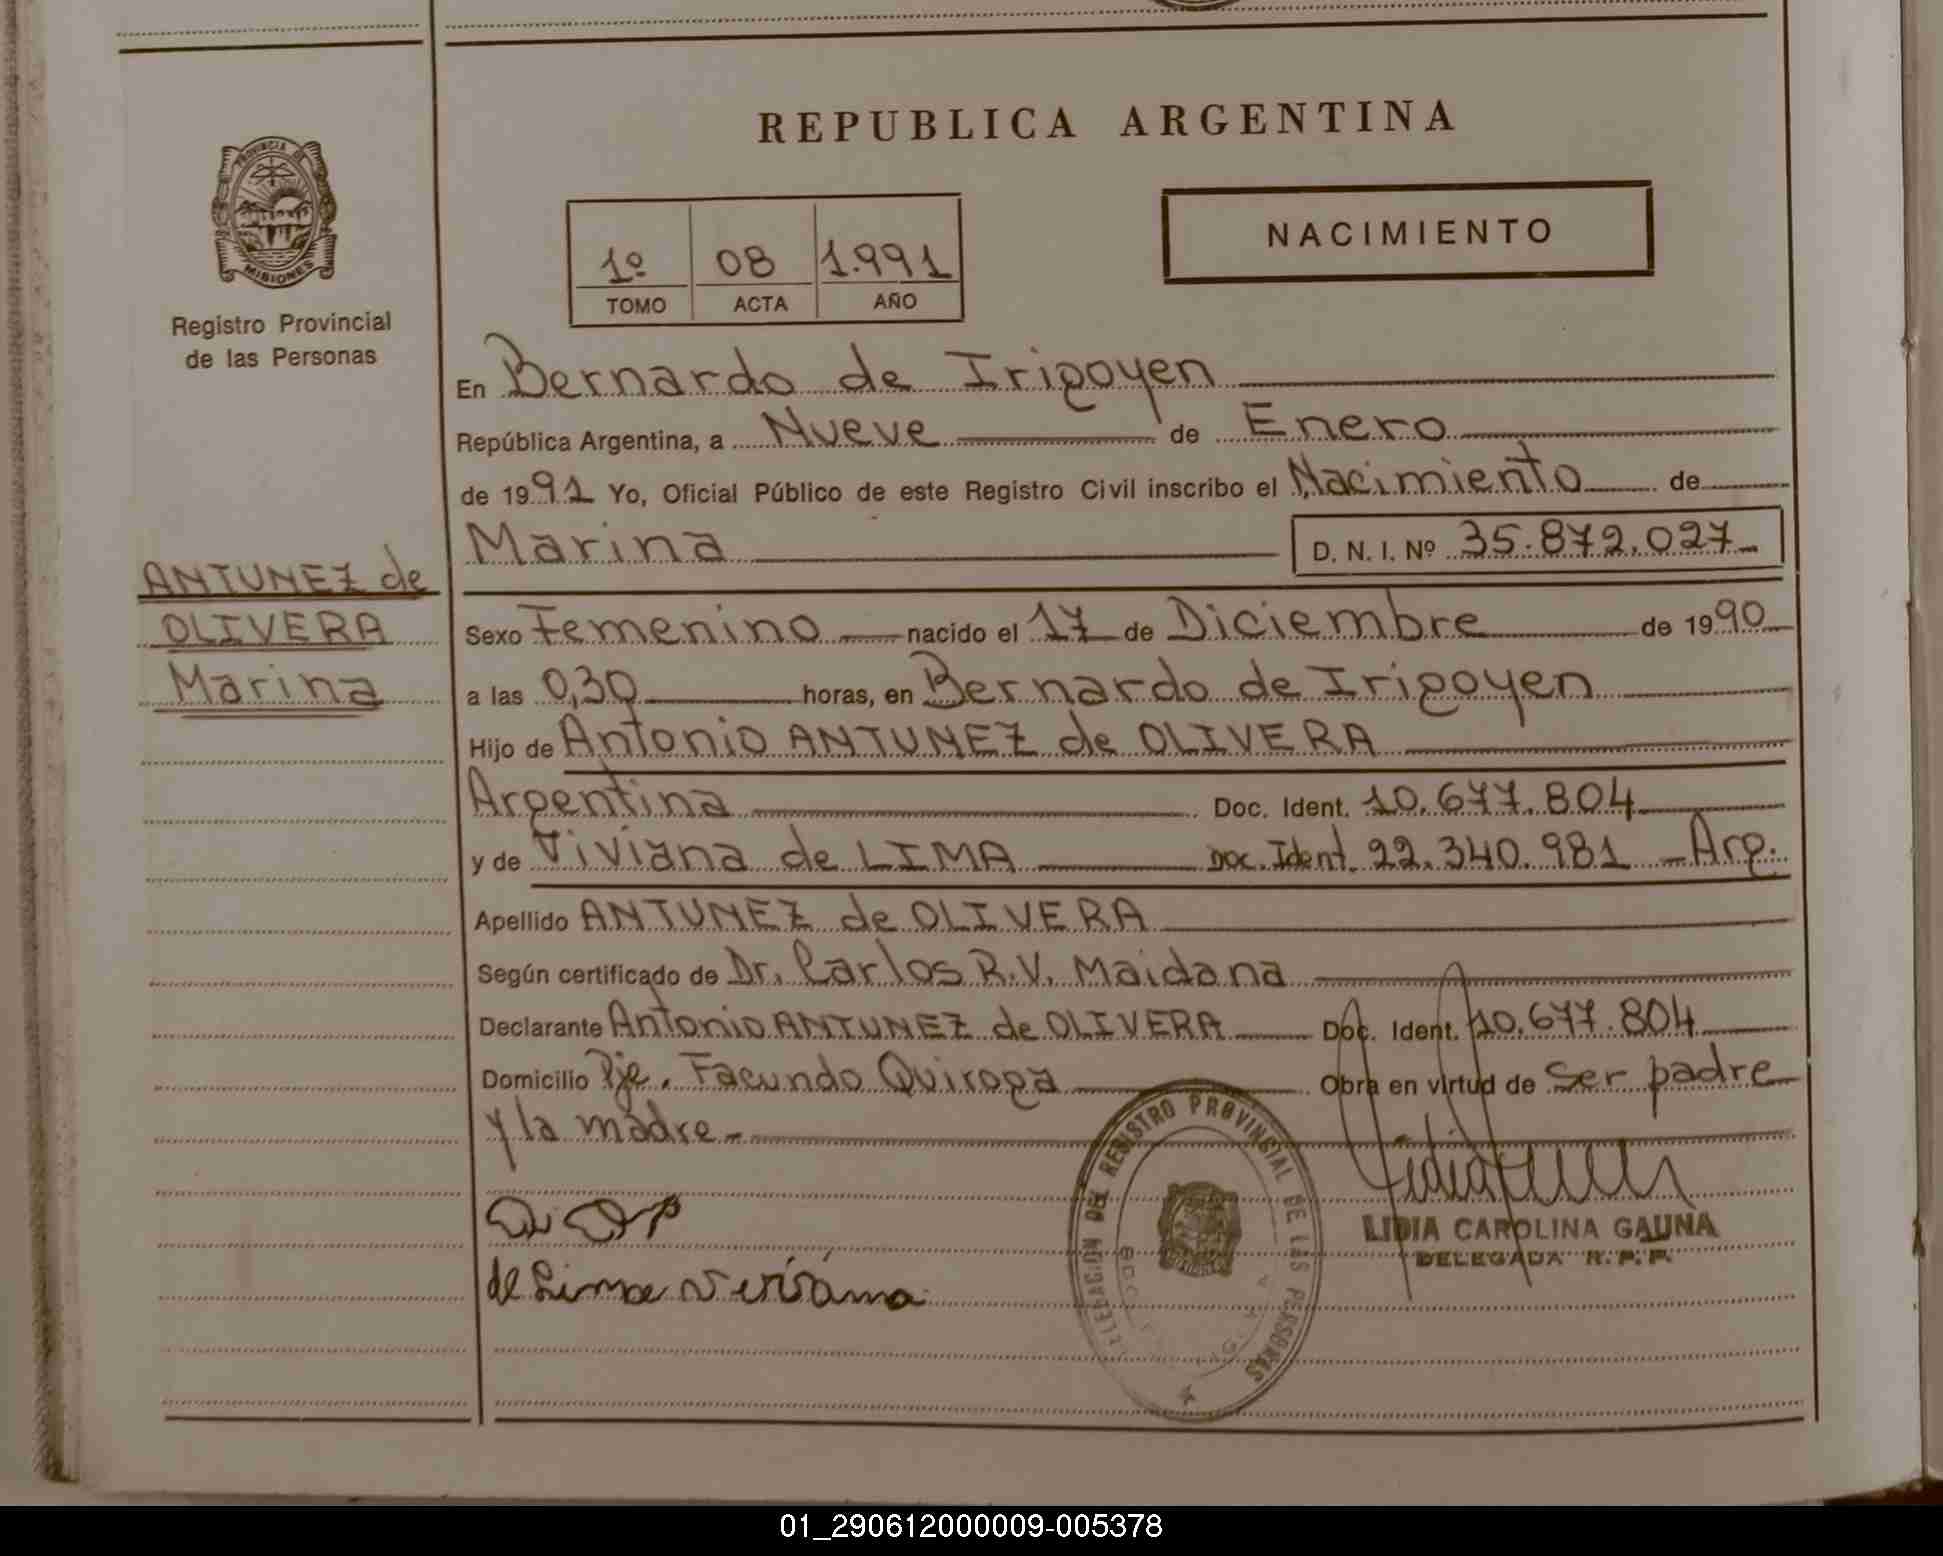 REPUBLICA ARGENTINA
PROVINCIA DE
MISIONES
Registro Provincial
de las Personas
1º 08 1.991
TOMO ACTA AÑO
NACIMIENTO
En Bernardo de Irigoyen
República Argentina, a Nueve de Enero
de 1991 Yo, Oficial Público de este Registro Civil inscribo el Nacimiento de
Marina D. N. I. Nº 35.872.027
ANTUNEZ de
OLIVERA
Marina
Sexo Femenino nacido el 17 de Diciembre de 1990
a las 0,30 horas, en Bernardo de Irigoyen
Hijo de Antonio ANTUNEZ de OLIVERA
Argentina Doc. Ident. 10.677.804
y de Viviana de LIMA Doc. Ident. 22.340.981 Arg.
Apellido ANTUNEZ de OLIVERA
Según certificado de Dr. Carlos R.V. Maidana
Declarante Antonio ANTUNEZ de OLIVERA Doc. Ident. 10.677.804
Domicilio Pje. Facundo Quiroga Obra en virtud de Ser padre
y la madre
DELEGACION DEL REGISTRO PROVINCIAL DE LAS PERSONAS
LIDIA CAROLINA GAUNA
DELEGADA R.P.P.
de Lima Viviana
01_290612000009-005378